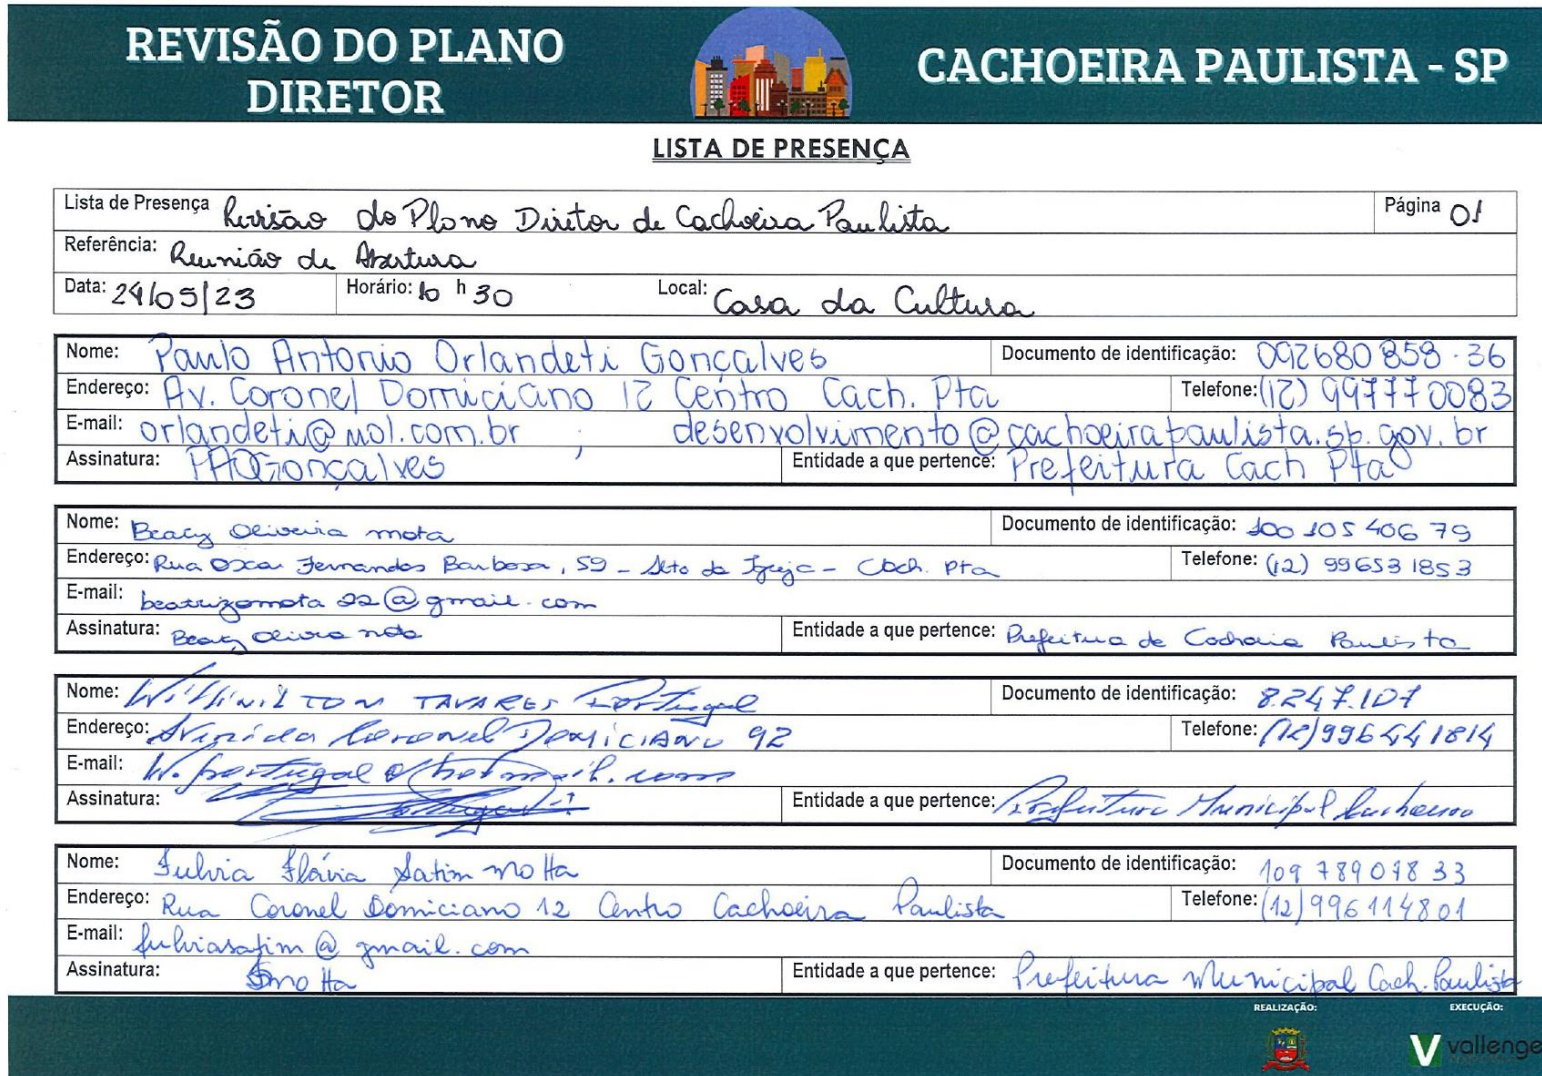 REVISÃO DO PLANO DIRETOR
CACHOEIRA PAULISTA - SP
LISTA DE PRESENÇA
Lista de Presença Revisão do Plano Diretor de Cachoeira Paulista Página 01
Referência: Reunião de Abertura
Data: 24/05/23 Horário: 10 h 30 Local: Casa da Cultura
Nome: Paulo Antonio Orlandeti Gonçalves Documento de identificação: 092680858-36
Endereço: Av. Coronel Domiciano 12 Centro Cach. Pta Telefone: (12) 997770083
E-mail: orlandeti@uol.com.br ; desenvolvimento@cachoeirapaulista.sp.gov.br
Assinatura: PAOGonçalves Entidade a que pertence: Prefeitura Cach Pta
Nome: Oliveira mota Documento de identificação: 100 105 406 79
Endereço: Rua Oscar Fernandes Barbosa, 59 - Alto da Igreja - Cach. Pta Telefone: (12) 99653 1853
E-mail: beatrizomota22@gmail.com
Assinatura: Entidade a que pertence: Prefeitura de Cachoeira Paulista
Nome: Willinilton TAVARES Portugal Documento de identificação: 8.247.107
Endereço: Avenida Coronel DOMICIANO 92 Telefone: (12) 996441814
E-mail: W.portugal@hotmail.com
Assinatura: Entidade a que pertence: Prefeitura Municipal Cachoeira
Nome: Fulvia Flávia Satim Motta Documento de identificação: 109 789 078 33
Endereço: Rua Coronel Domiciano 12 Centro Cachoeira Paulista Telefone: (12) 996114801
E-mail: fulviasatim@gmail.com
Assinatura: Entidade a que pertence: Prefeitura Municipal Cach. Paulista
REALIZAÇÃO: EXECUÇÃO:
vallenge